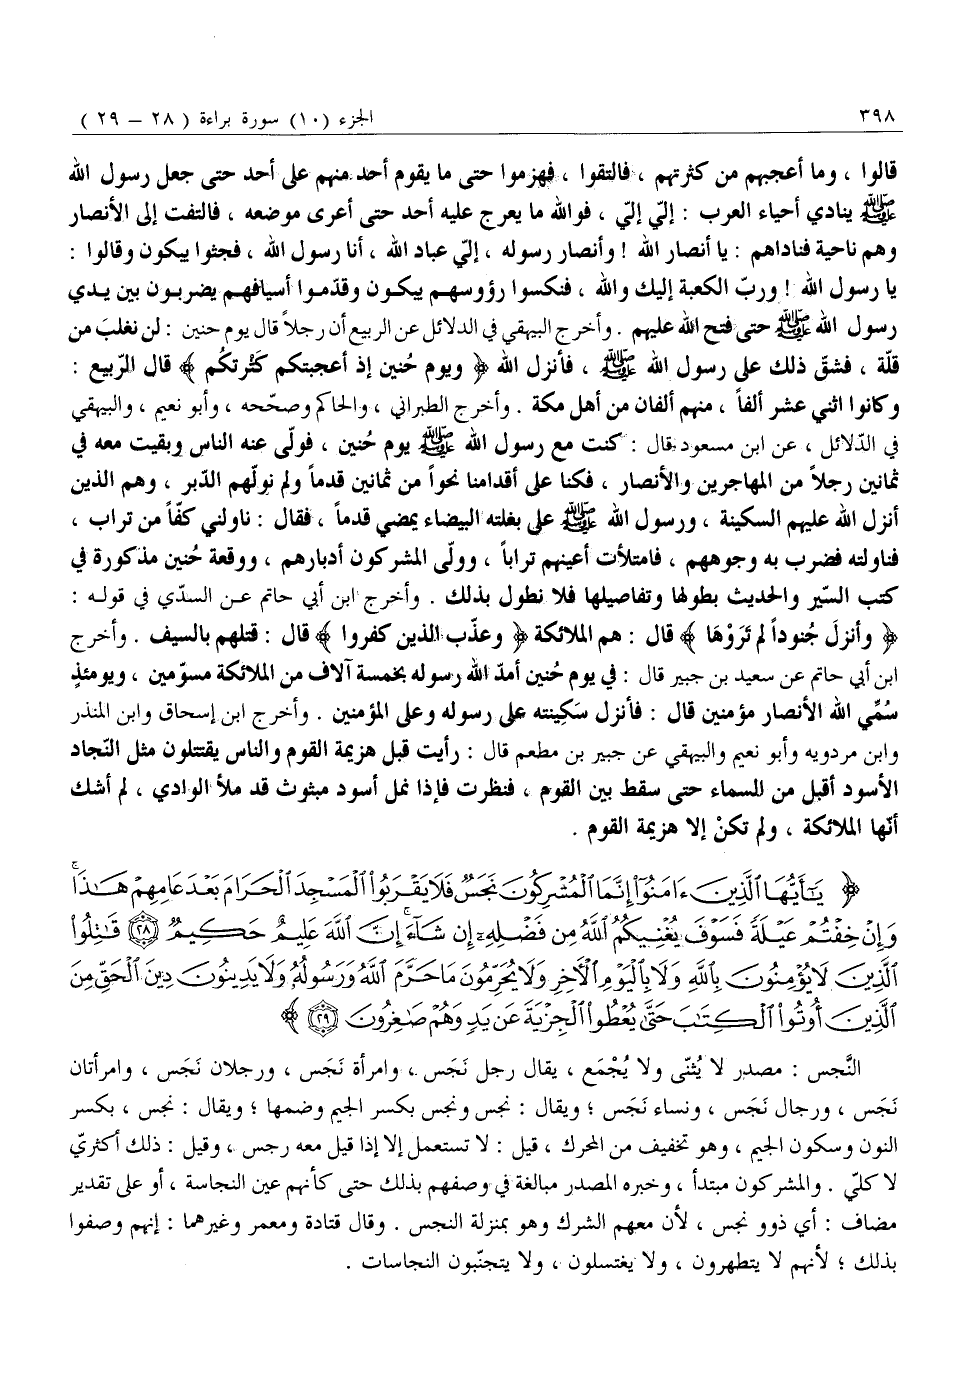 ٣٩٨ الجزء (١٠) سورة براءة ( ٢٨ – ٢٩ )
قالوا ، وما أعجبهم من كثرتهم ، فالتقوا ، فهزموا حتى ما يقوم أحد منهم على أحد حتى جعل رسول الله
ﷺ ينادي أحياء العرب : إليّ إليّ ، فوالله ما يعرج عليه أحد حتى أعرى موضعه ، فالتفت إلى الأنصار
وهم ناحية فناداهم : يا أنصار الله ! وأنصار رسوله ، إليّ عباد الله ، أنا رسول الله ، فجثوا يبكون وقالوا :
يا رسول الله ! وربّ الكعبة إليك والله ، فنكسوا رؤوسهم يبكون وقدّموا أسيافهم يضربون بين يدي
رسول الله ﷺ حتى فتح الله عليهم . وأخرج البيهقي في الدلائل عن الربيع أن رجلاً قال يوم حنين : لن نغلب من
قلّة ، فشقّ ذلك على رسول الله ﷺ ، فأنزل الله ﴿ ويوم حُنين إذ أعجبتكم كَثْرتكُم ﴾ قال الرّبيع :
وكانوا اثني عشر ألفاً ، منهم ألفان من أهل مكة . وأخرج الطبراني ، والحاكم وصحّحه ، وأبو نعيم ، والبيهقي
في الدّلائل ، عن ابن مسعود قال : كنت مع رسول الله ﷺ يوم حُنين ، فولّى عنه الناس وبقيت معه في
ثمانين رجلاً من المهاجرين والأنصار ، فكنا على أقدامنا نحواً من ثمانين قدماً ولم نولّهم الدّبر ، وهم الذين
أنزل الله عليهم السكينة ، ورسول الله ﷺ على بغلته البيضاء يمضي قدماً ، فقال : ناولني كفّاً من تراب ،
فناولته فضرب به وجوههم ، فامتلأت أعينهم تراباً ، وولّى المشركون أدبارهم ، ووقعة حُنين مذكورة في
كتب السّير والحديث بطولها وتفاصيلها فلا نطول بذلك . وأخرج ابن أبي حاتم عن السدّي في قوله :
﴿ وأنزلَ جُنوداً لم تَرَوْهَا ﴾ قال : هم الملائكة ﴿ وعذّب الذين كفروا ﴾ قال : قتلهم بالسيف . وأخرج
ابن أبي حاتم عن سعيد بن جبير قال : في يوم حُنين أمدّ الله رسوله بخمسة آلاف من الملائكة مسوّمين ، ويومئذٍ
سُمِّي الله الأنصار مؤمنين قال : فأنزل سَكِينته على رسوله وعلى المؤمنين . وأخرج ابن إسحاق وابن المنذر
وابن مردويه وأبو نعيم والبيهقي عن جبير بن مطعم قال : رأيت قبل هزيمة القوم والناس يقتتلون مثل النّجاد
الأسود أقبل من السماء حتى سقط بين القوم ، فنظرت فإذا نمل أسود مبثوث قد ملأ الوادي ، لم أشك
أنّها الملائكة ، ولم تكنْ إلا هزيمة القوم .
﴿ يَٰٓأَيُّهَا ٱلَّذِينَ ءَامَنُوٓا۟ إِنَّمَا ٱلْمُشْرِكُونَ نَجَسٌ فَلَا يَقْرَبُوا۟ ٱلْمَسْجِدَ ٱلْحَرَامَ بَعْدَ عَامِهِمْ هَٰذَا ۚ
وَإِنْ خِفْتُمْ عَيْلَةً فَسَوْفَ يُغْنِيكُمُ ٱللَّهُ مِن فَضْلِهِۦٓ إِن شَآءَ ۚ إِنَّ ٱللَّهَ عَلِيمٌ حَكِيمٌ ﴿٢٨﴾ قَٰتِلُوا۟
ٱلَّذِينَ لَا يُؤْمِنُونَ بِٱللَّهِ وَلَا بِٱلْيَوْمِ ٱلْءَاخِرِ وَلَا يُحَرِّمُونَ مَا حَرَّمَ ٱللَّهُ وَرَسُولُهُۥ وَلَا يَدِينُونَ دِينَ ٱلْحَقِّ مِنَ
ٱلَّذِينَ أُوتُوا۟ ٱلْكِتَٰبَ حَتَّىٰ يُعْطُوا۟ ٱلْجِزْيَةَ عَن يَدٍ وَهُمْ صَٰغِرُونَ ﴿٢٩﴾ ﴾
النَّجس : مصدر لا يُثنّى ولا يُجْمَع ، يقال رجل نَجَس ، وامرأة نَجَس ، ورجلان نَجَس ، وامرأتان
نَجَس ، ورجال نَجَس ، ونساء نَجَس ؛ ويقال : نجس ونجس بكسر الجيم وضمها ؛ ويقال : نجس ، بكسر
النون وسكون الجيم ، وهو تخفيف من المحرك ، قيل : لا تستعمل إلا إذا قيل معه رجس ، وقيل : ذلك أكثريّ
لا كليّ . والمشركون مبتدأ ، وخبره المصدر مبالغة في وصفهم بذلك حتى كأنهم عين النجاسة ، أو على تقدير
مضاف : أي ذوو نجس ، لأن معهم الشرك وهو بمنزلة النجس . وقال قتادة ومعمر وغيرهما : إنهم وصفوا
بذلك ؛ لأنهم لا يتطهرون ، ولا يغتسلون ، ولا يتجنّبون النجاسات .